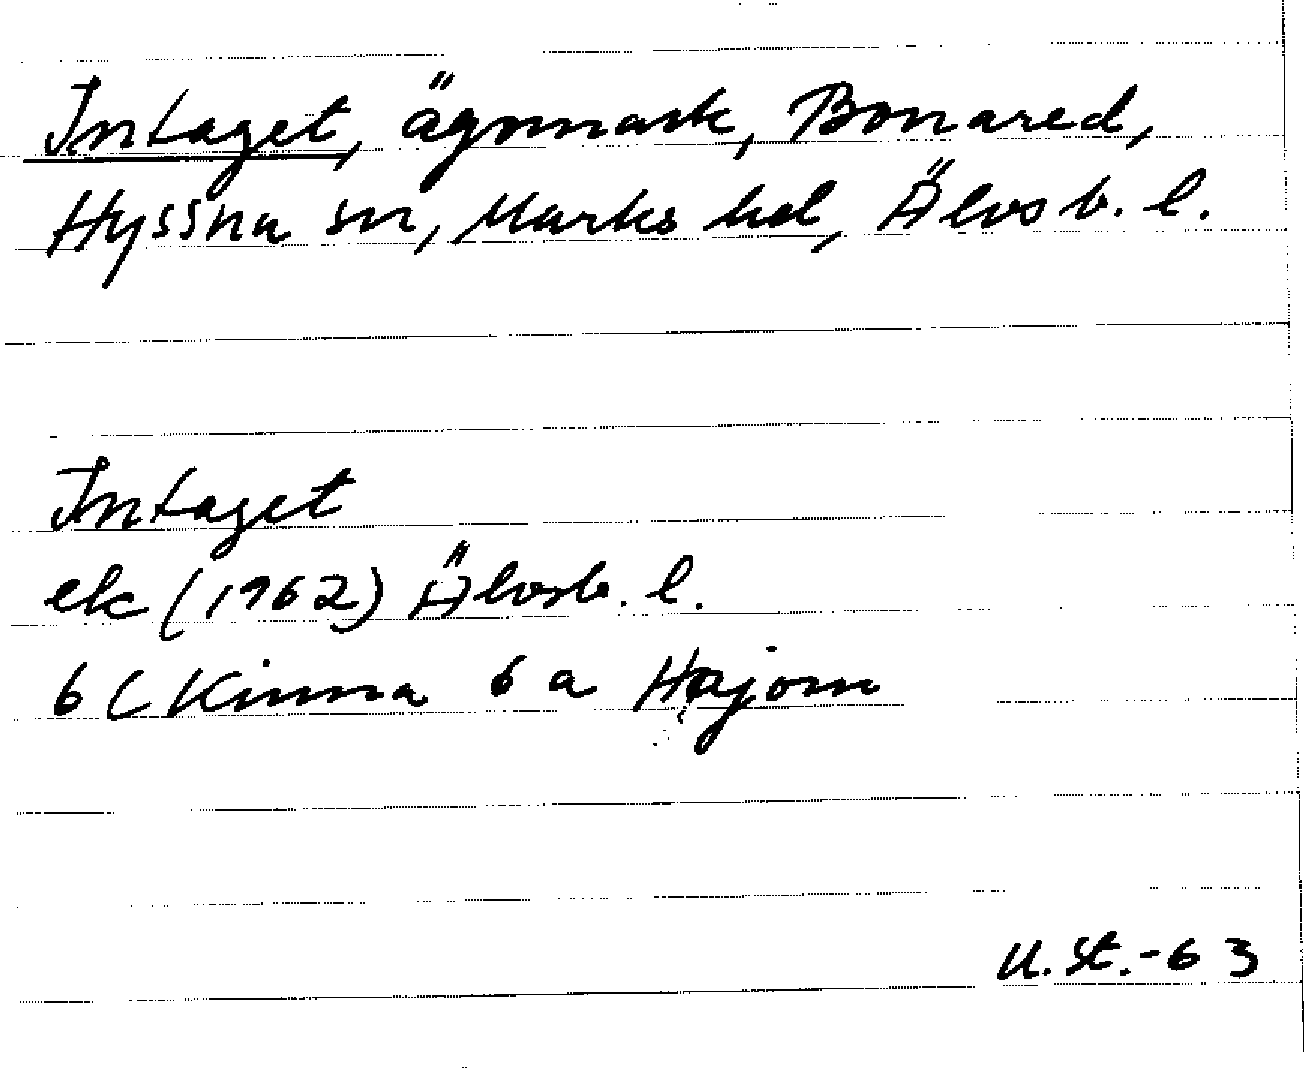 Intaget, ägomark, Bonared,
Hyssna sn, Marks hd, Älvsb. l.
Intaget
ek (1962) Älvsb. l.
6 C Kinna 6 a Hajom
U. St. -63